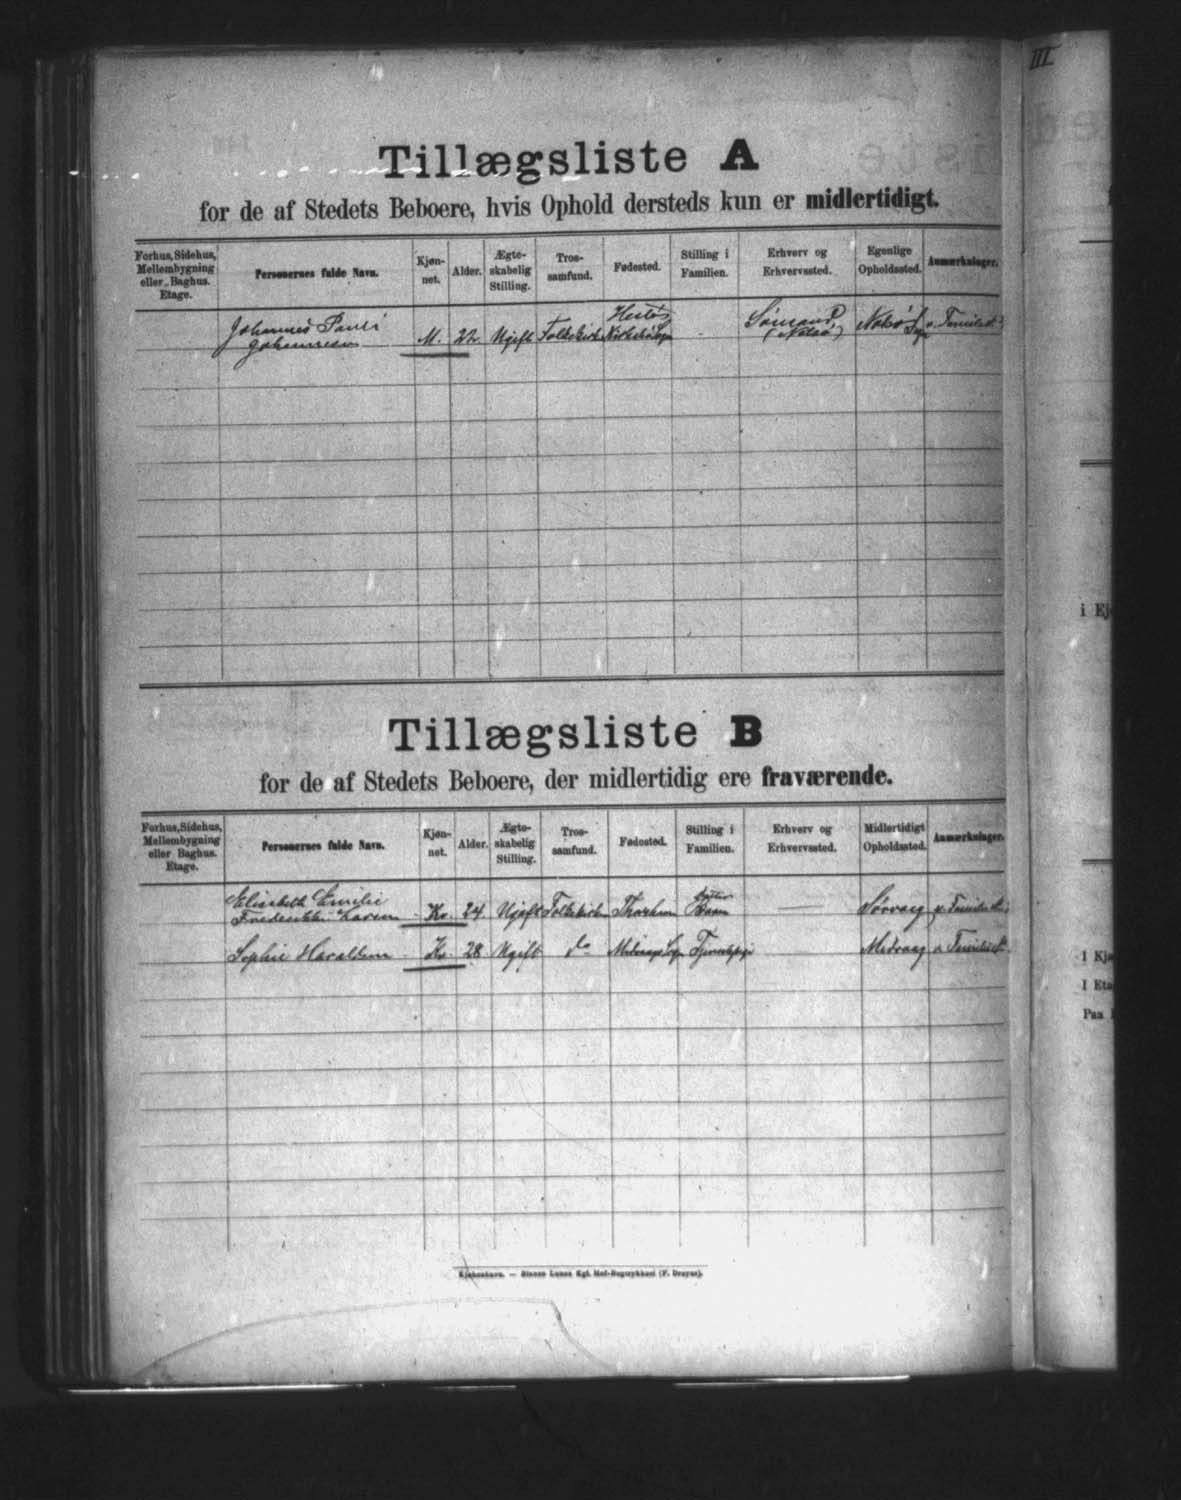 Tillægsliste A
for de af Stedets Beboere, hvis Ophold dersteds kun er midlertidigt.
Forhus, Sidehus, Mellembygning eller Baghus. Etage.
Personernes fulde Navn.
Kjøn-net.
Alder.
Ægte-skabelig Stilling.
Tros-samfund.
Fødested.
Stilling i Familien.
Erhverv og Erhvervssted.
Egenlige Opholdssted.
Anmærkninger.
Johannes Pauli Johannesen
M.
22
Ugift
Folkekirke
Hestø,
-
Sømand (Nolsø)
Nolsø
Tillægsliste B
for de af Stedets Beboere, der midlertidig ere fraværende.
Forhus, Sidehus, Mellembygning eller Baghus. Etage.
Personernes fulde Navn.
Kjøn-net.
Alder.
Ægte-skabelig Stilling.
Tros-samfund.
Fødested.
Stilling i Familien.
Erhverv og Erhvervssted.
Midlertidigt Opholdssted.
Anmærkninger.
Elisabeth Emilie
Kv. 24 Ugift Folkekirke Thorshavn Barn Sørvaag
Sophie Haraldsen Kv. 28 Ugift do Midvaag
Kjøbenhavn. — Bianco Lunos Kgl. Hof-Bogtrykkeri (F. Dreyer).
III
i Ej
I Kjæ
I Eta
Paa